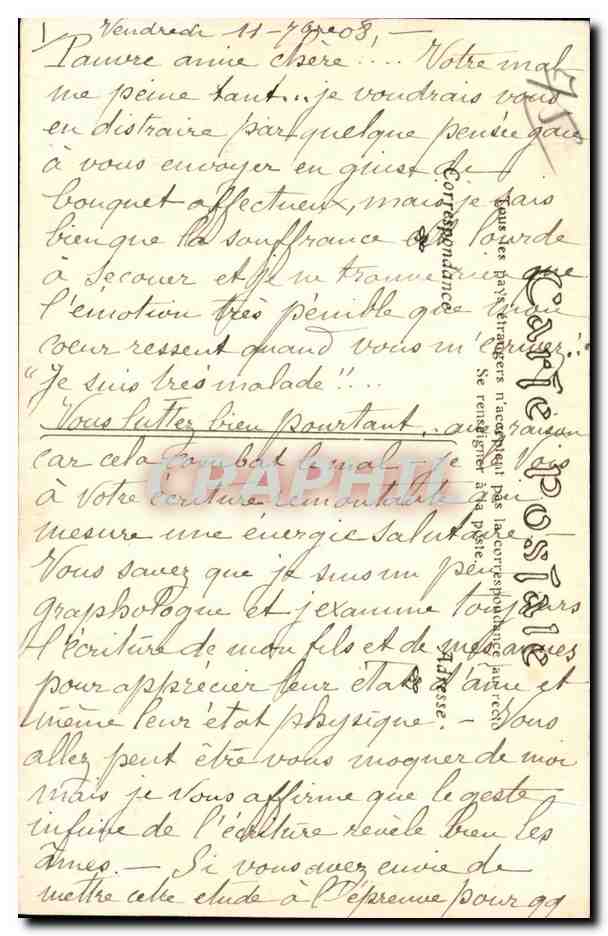 I Vendredi 11-7bre 08, —
Pauvre amie chère!... Votre mal
me peine tant... je voudrais vous
en distraire par quelque pensée gaie
à vous envoyer en guise de
bouquet affectueux, mais je sais
bien que la souffrance est lourde
à secouer et je ne trouve rien que
l'émotion très pénible que mon
cœur ressent quand vous m'écrivez:
"Je suis très malade"!...
Vous luttez bien pourtant... avec raison
car cela combat le mal. Je Vois
à Votre écriture remontante
mesure une énergie salutaire —
Vous savez que je suis un peu
graphologue et j'examine toujours
l'écriture de mon fils et de mes amies
pour apprécier leur état d'âme et
même leur état physique. — Vous
allez peut être vous moquer de moi
mais je vous affirme que le geste
infime de l'écriture révèle bien les
âmes. — Si vous avez envie de
mettre cette étude à l'épreuve pour qq
75
Carte postale
Tous les pays étrangers n'acceptent pas la correspondance au recto
Se renseigner à la poste
Correspondance
Adresse
CPAPHIL